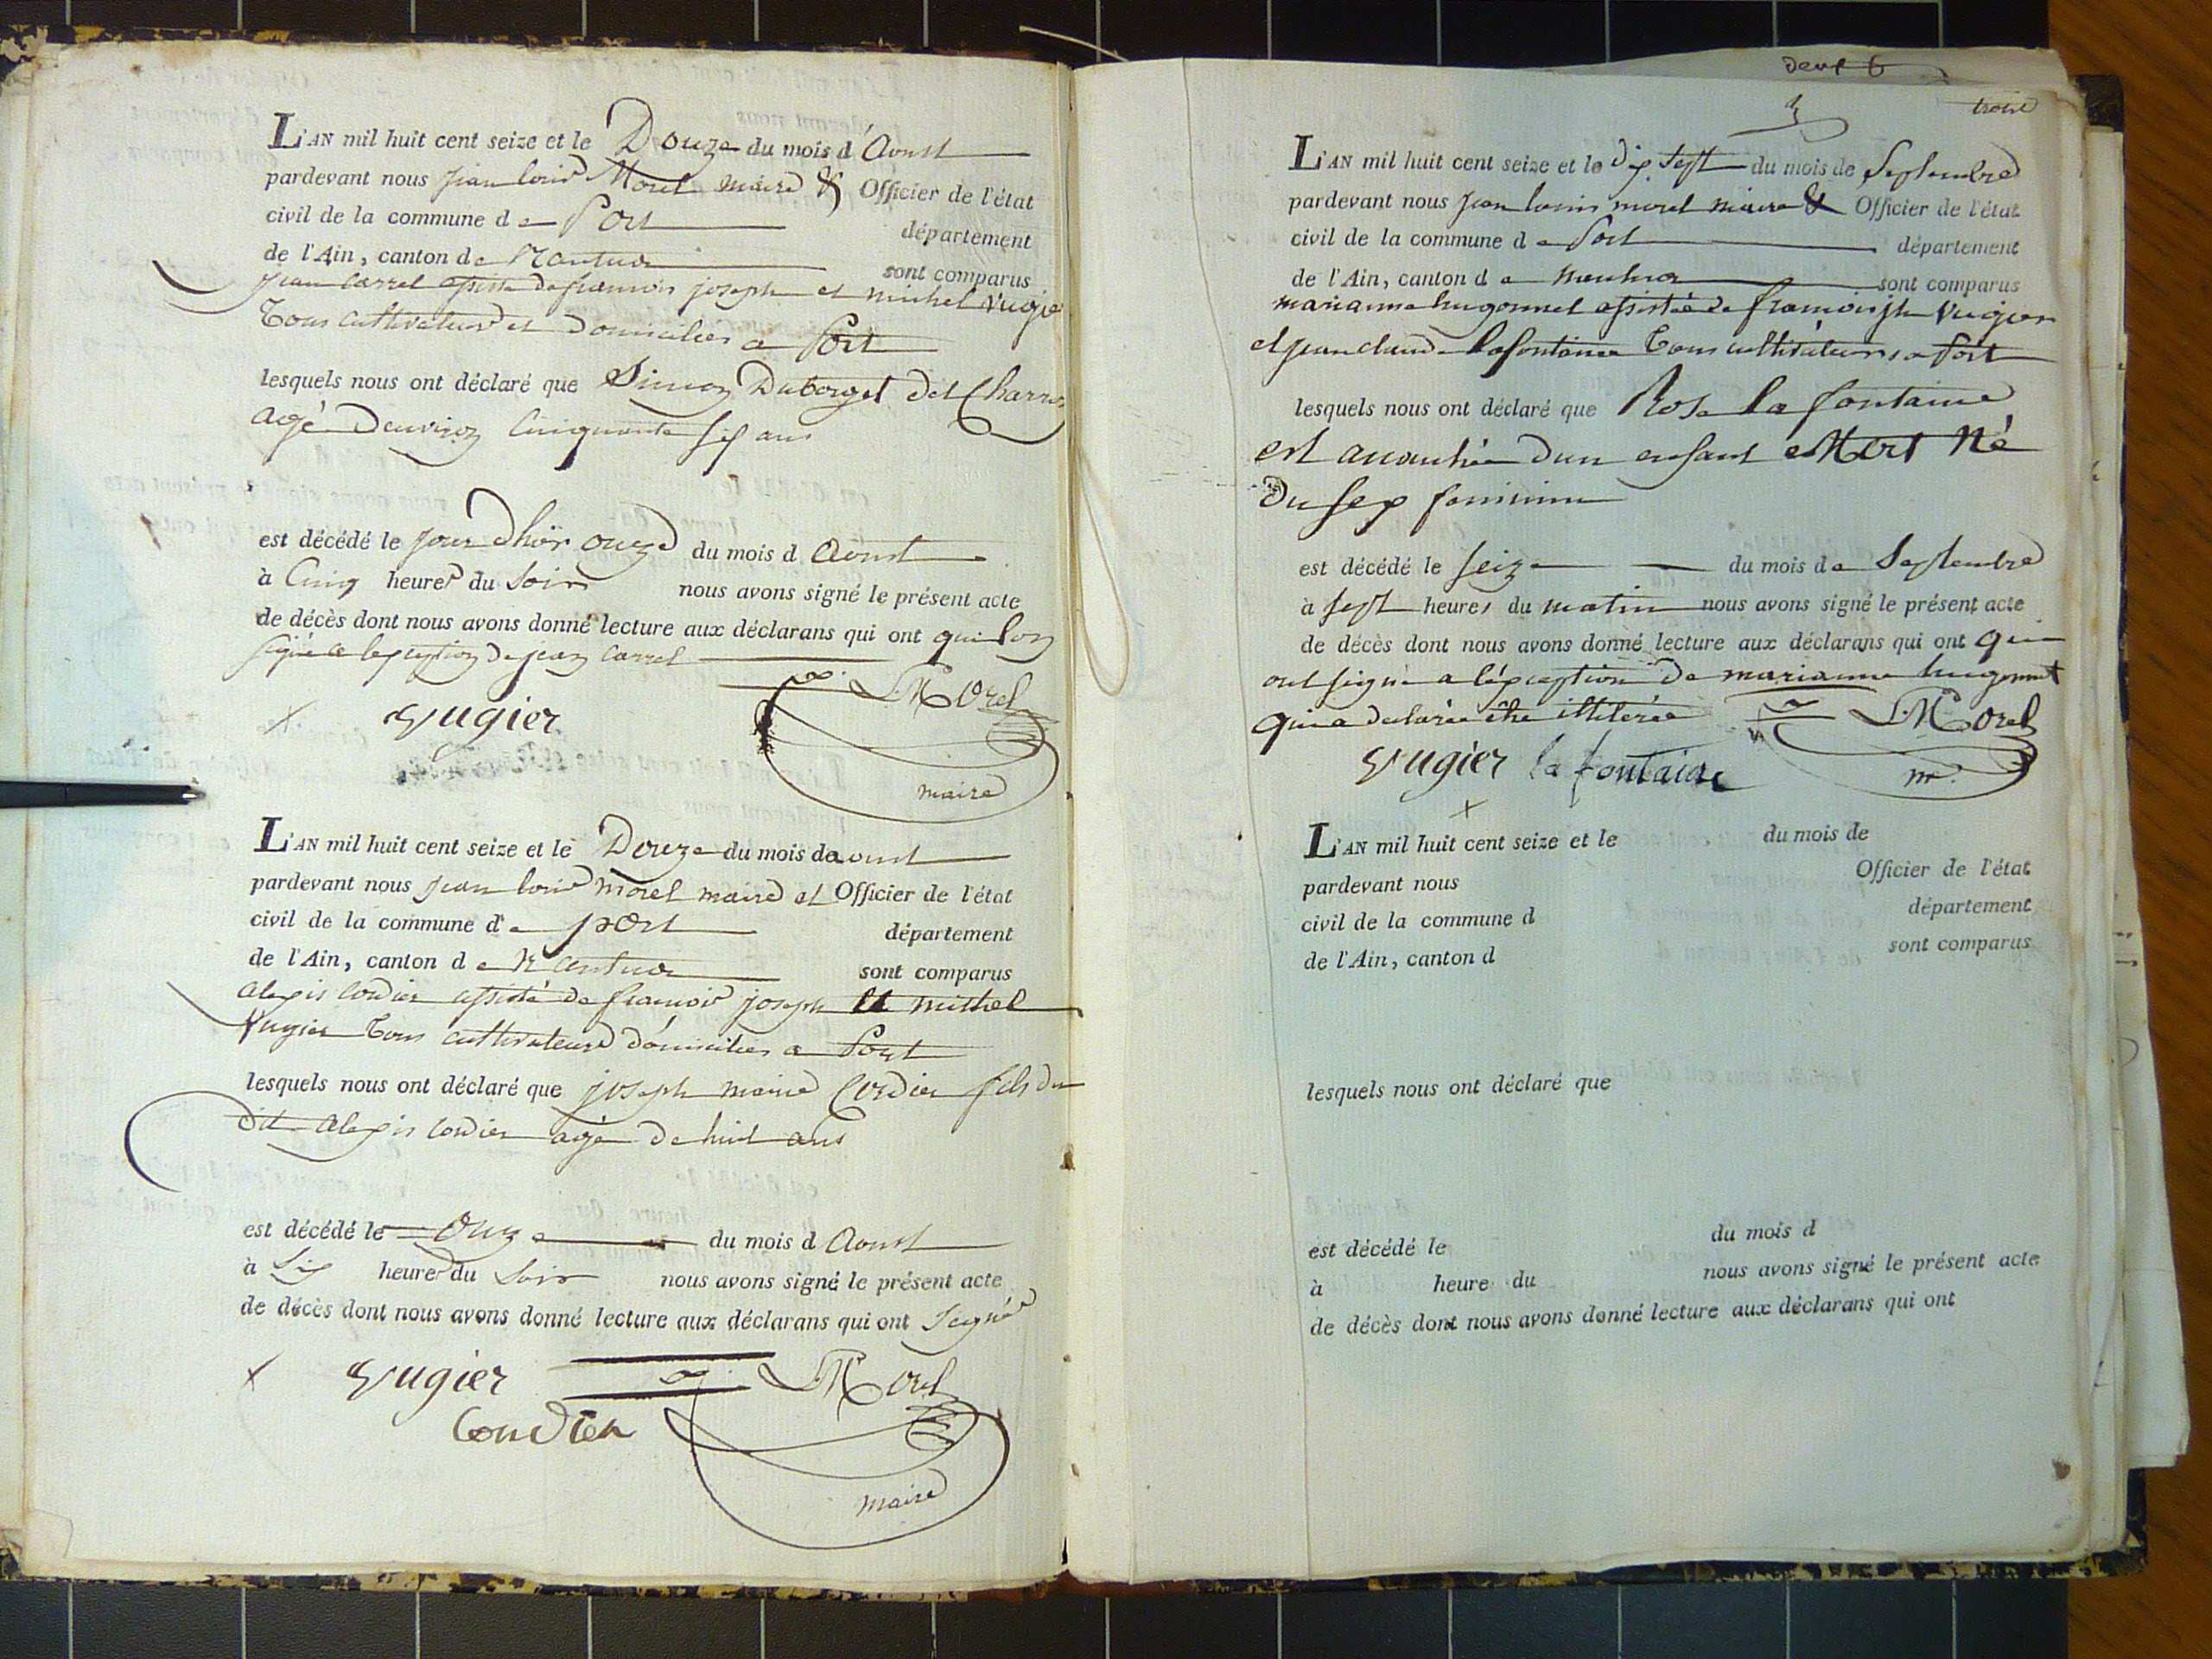 L'AN mil huit cent seize et le Douze du mois d'Aoust
pardevant nous jean louis Morel maire & Officier de l'état
civil de la commune de Port département
de l'Ain, canton de Nantua sont comparus
jean Carrel assisté de francois joseph et michel Vugier
Tous cultivateurs et Domiciliés a Port
lesquels nous ont déclaré que Simon Duborget dit Charron
agé Denviron Cinquante six ans
est décédé le jour dhier onze du mois d Aoust
à Cinq heures du Soir nous avons signé le présent acte
de décès dont nous avons donné lecture aux déclarans qui ont qui lon
signé a lexception de jean Carrel
Vugier L. Morel
maire
L'AN mil huit cent seize et le Douze du mois de aoust
pardevant nous jean louis morel maire et Officier de l'état
civil de la commune de port département
de l'Ain, canton de Nantua sont comparus
alexis Cordier assisté de francois joseph et michel
Vugier Tous cultivateurs domiciliés a Port
lesquels nous ont déclaré que joseph marie Cordier fils du
dit alexis Cordier agé de huit ans
est décédé le Onze du mois d Aoust
à Six heures du Soir nous avons signé le présent acte
de décès dont nous avons donné lecture aux déclarans qui ont Signé
Vugier L. Morel
Cordier
maire
deux
3 trois
L'AN mil huit cent seize et le dix sept du mois de Septembre
pardevant nous jean louis morel maire & Officier de l'état
civil de la commune de Port département
de l'Ain, canton de nantua sont comparus
marianne hugonnet assistée de francois jh Vugier
et jean claude lafontaine Tous cultivateurs a Port
lesquels nous ont déclaré que Rose la fontaine
est accouchée dun enfant Mort Né
Du sex feminin
est décédé le seize du mois de Septembre
à sept heures du matin nous avons signé le présent acte
de décès dont nous avons donné lecture aux déclarans qui ont qui
ont signé a léxception de marianne hugonnet
qui a declarée être illiterée L. Morel
Vugier la fontaine m.
L'AN mil huit cent seize et le du mois de
pardevant nous Officier de l'état
civil de la commune d département
de l'Ain, canton d sont comparus
lesquels nous ont déclaré que
est décédé le du mois d
à heure du nous avons signé le présent acte
de décès dont nous avons donné lecture aux déclarans qui ont